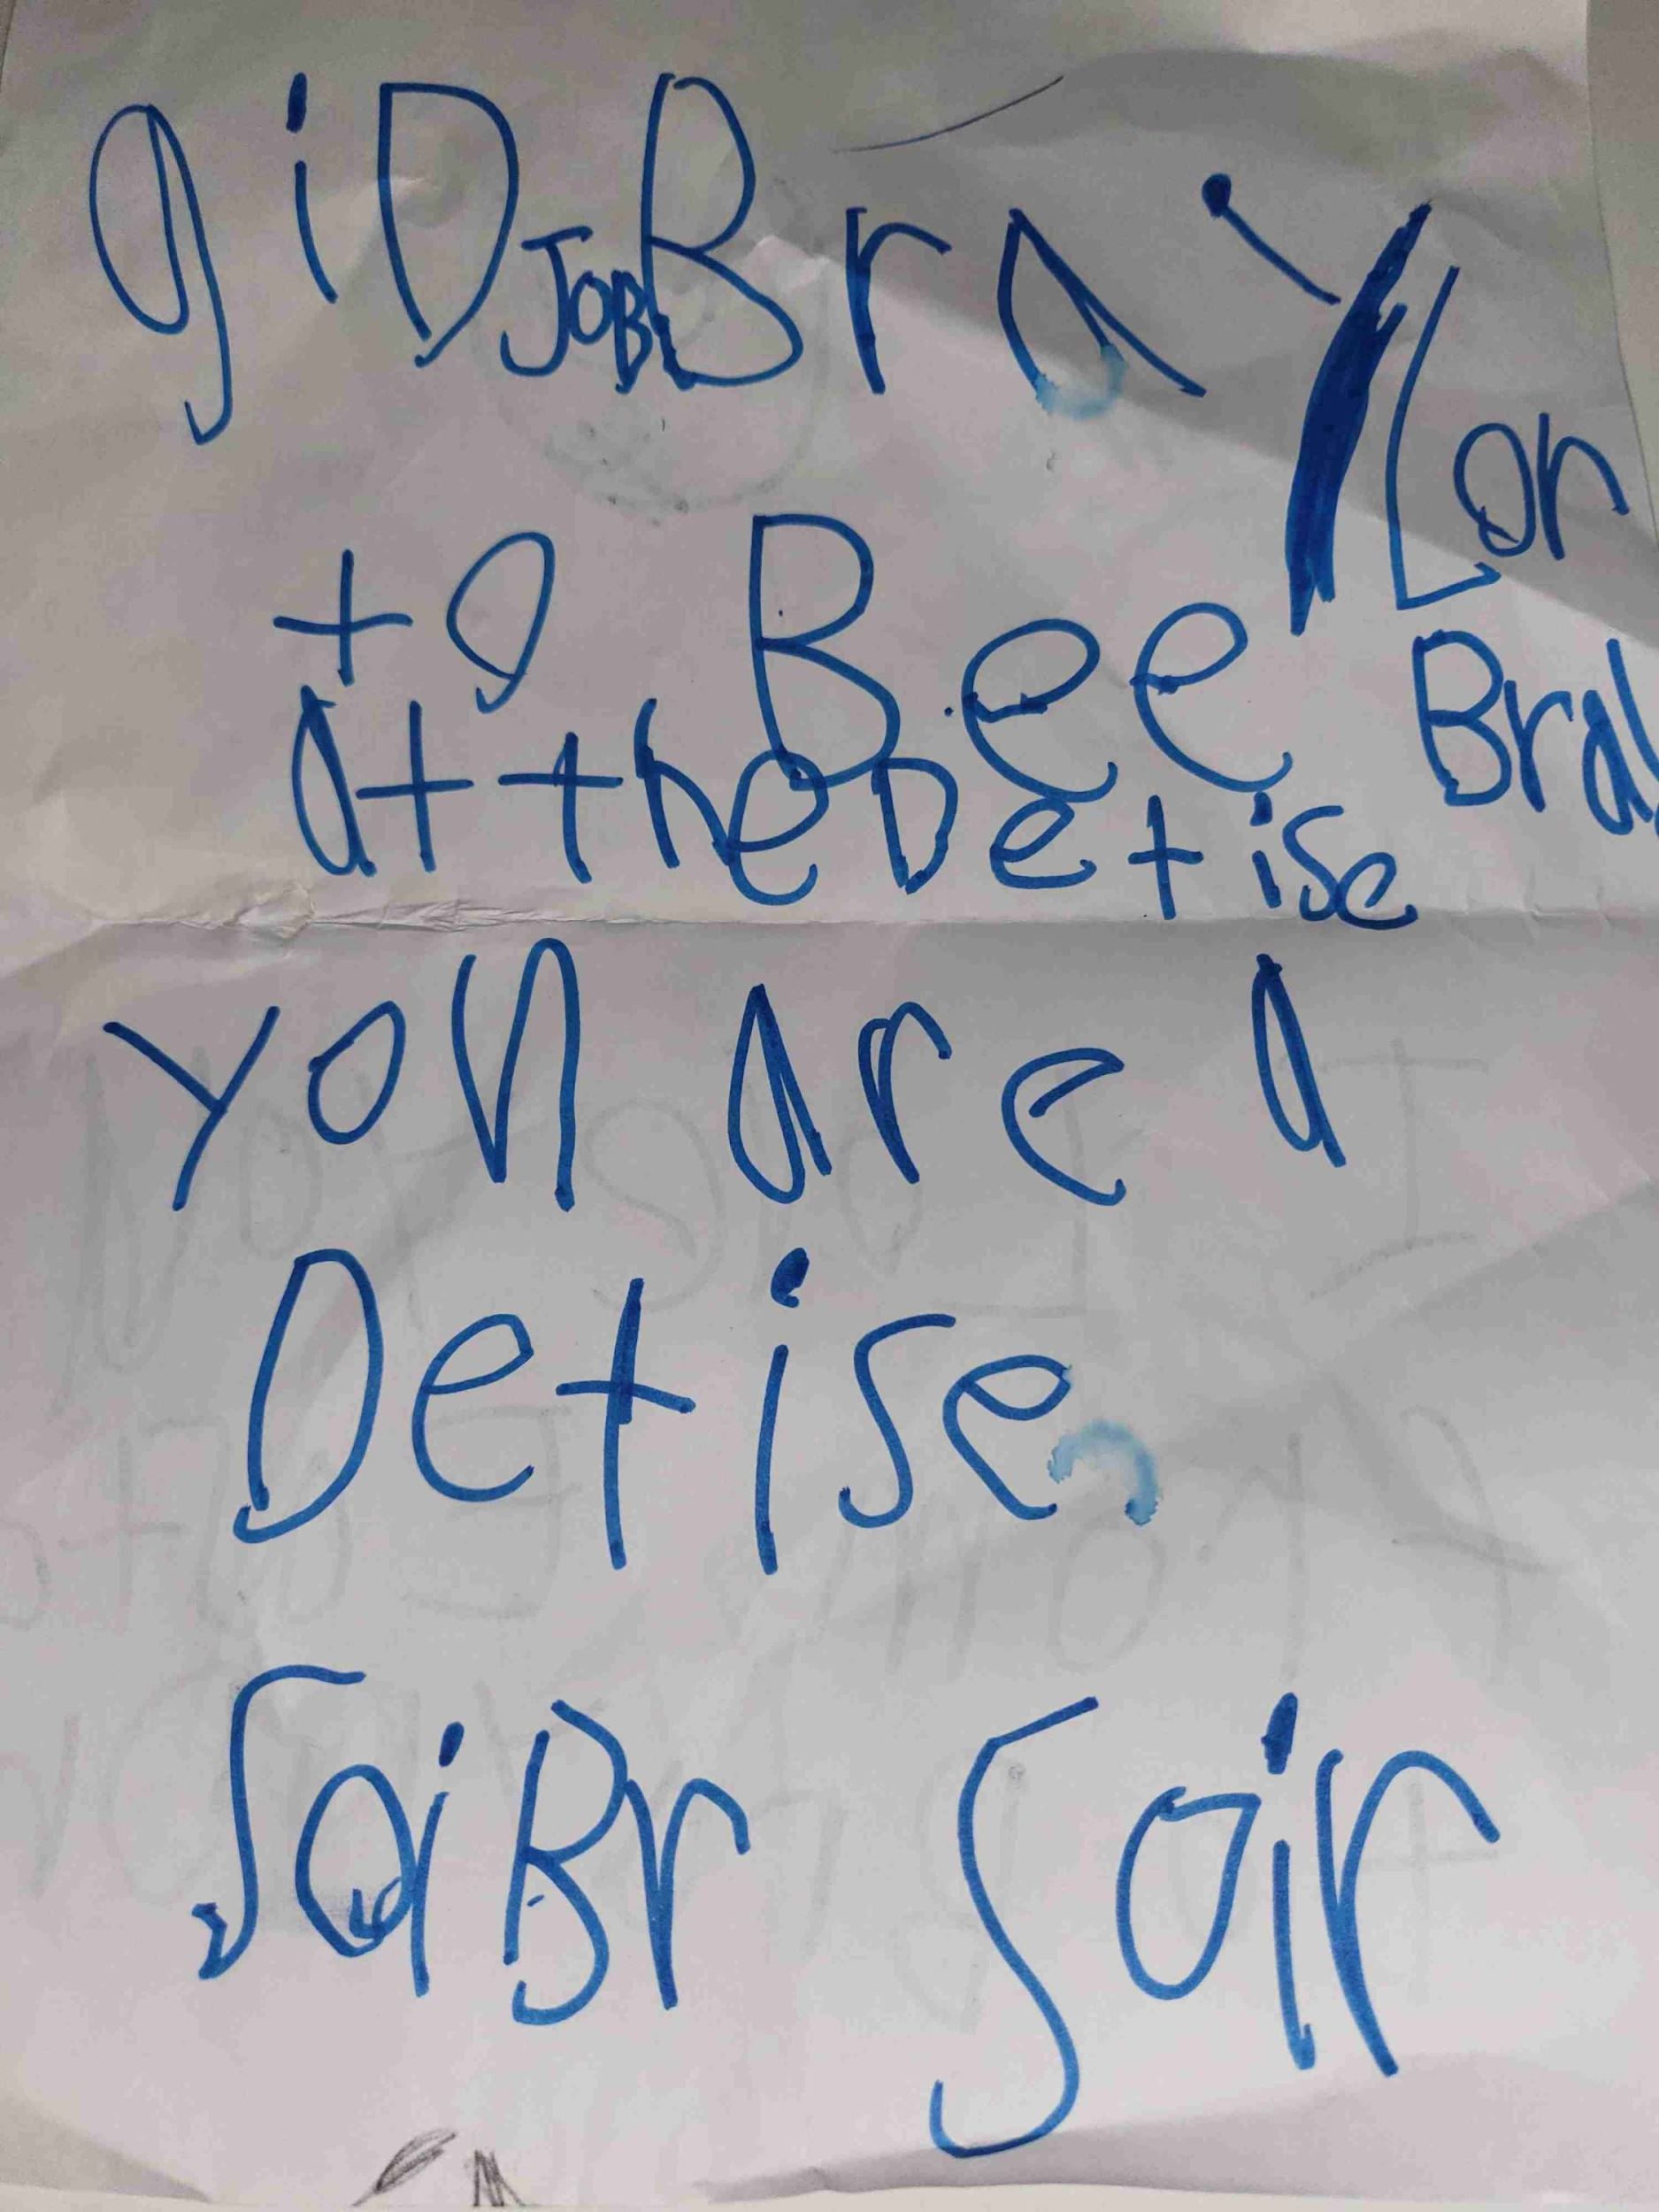 giD JOB BraYLon
to Bee Bral
at the Detise
you are a
Detise.
SaiBr Sair